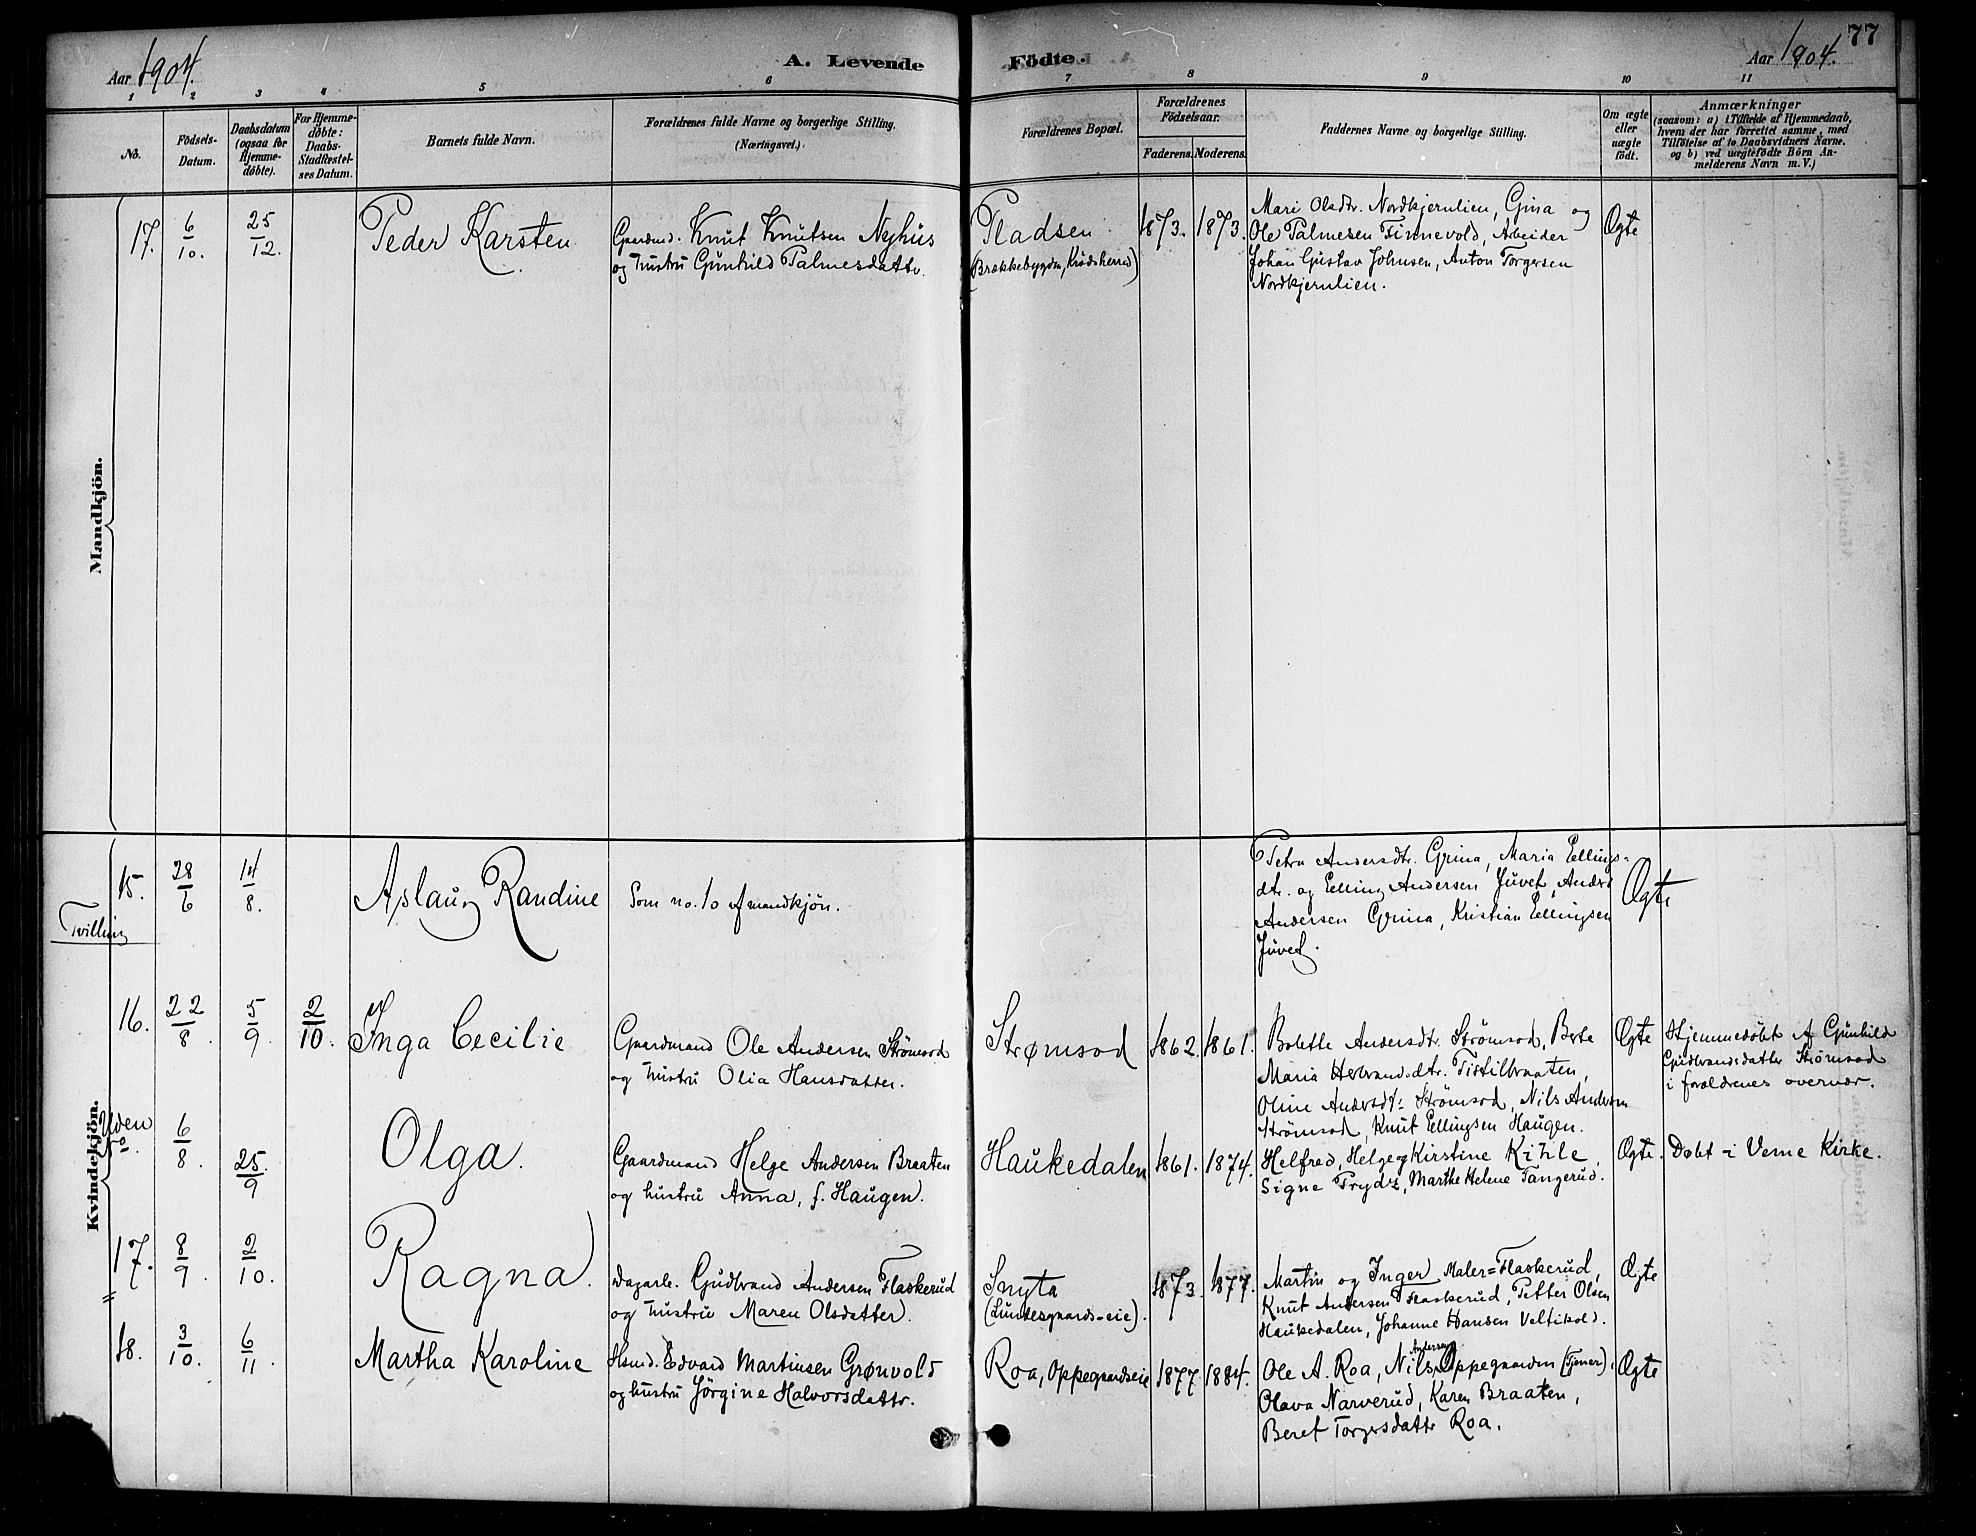 77
Aar 1904. A. Levende Födte. Aar 1904.
1 2 3 4 5 6 7 8 9 10 11
No.
Födsels-Datum.
Daabsdatum (ogsaa for Hjemme-døbte).
For Hjemme-døbte: Daabs-Stadfestel-ses Datum.
Barnets fulde Navn.
Forældrenes fulde Navne og borgerlige Stilling.
(Næringsvei.)
Forældrenes Bopæl.
Forældrenes Födselsaar.
Faderens. Moderens.
Faddernes Navne og borgerlige Stilling.
Om ægte eller uægte født.
Anmærkninger
(saasom: a) i Tilfælde af Hjemmedaab,
hvem der har forrettet samme, med
Tilföielse af to Daabsvidners Navne.
og b) ved uægtefödte Börn An-
melderens Navn m. V.)
Mandkjön.
17. 6/10. 25/12. Peder Karsten
Gaardmd. Knut Knutsen Nyhus
og hustru Gunhild Palmesdattr.
Pladsen
(Brækkebygden, Krødsherred)
1873. 1873.
Mari Olsdtr. Nordkjernlien, Gina og
Ole Palmesen Finnevold, Arbeider
Johan Gustav Johnsen, Anton Torgersen
Nordkjernlien.
Ægte
Kvindekjön.
15. 28/6 14/8. Aslaug Randine
Tvilling
Som no. 10 af mandkjøn.
Petra Andersdtr. Grina, Maria Ellings-
dtr. og Elling Andersen Juvet, Anders
Andersen Grina, Kristian Ellingsen
Juvet.
Ægte
16. 22/8. 5/9. 2/10. Inga Cecilie
Gaardmand Ole Andersen Strömsod
og hustru Olia Hansdatter.
Strømsod 1862. 1861.
Bolette Andersdtr. Strömsod, Berte
Maria Herbrandsdtr. Tistilbraaten,
Oline Andersdtr. Strömsod, Nils Andersen
Strömsod, Knut Ellingsen Haugen.
Ægte
Hjemmedøbt af Gunhild
Gudbrandsdatter Strömsod
i forældrenes overvær.
Uden
No. 6/8. 25/9 Olga.
Gaardmand Helge Andersen Braaten
og hustru Anna, f. Haugen.
Haukedalen 1861. 1874.
Helfred, Helge og Kirstine Kihle,
Signe Frydz, Marthe Helene Tangerud.
Ægte. Døbt i Veme Kirke.
17. 8/9. 2/10. Ragna.
Dagarb. Gudbrand Andersen Flaskerud
og hustru Maren Olsdatter.
Snyta
(Lundesgaards-eie).
1873. 1877.
Martin og Inger Maler=Flaskerud,
Knut Andersen Flaskerud, Petter Olsen
Haukedalen, Johanne Hansen Veltikold.
Ægte
18. 3/10. 6/11. Martha Karoline
Hsmd. Edvard Martinsen Grønvold
og hustru Jörgine Halvorsdattr.
Roa, Oppegaardseie 1877. 1884.
Ole A. Roa, Nils Andersen Oppegaarden (Tjener),
Olava Narverud, Karen Braaten,
Beret Torgersdattr Roa.
Ægte